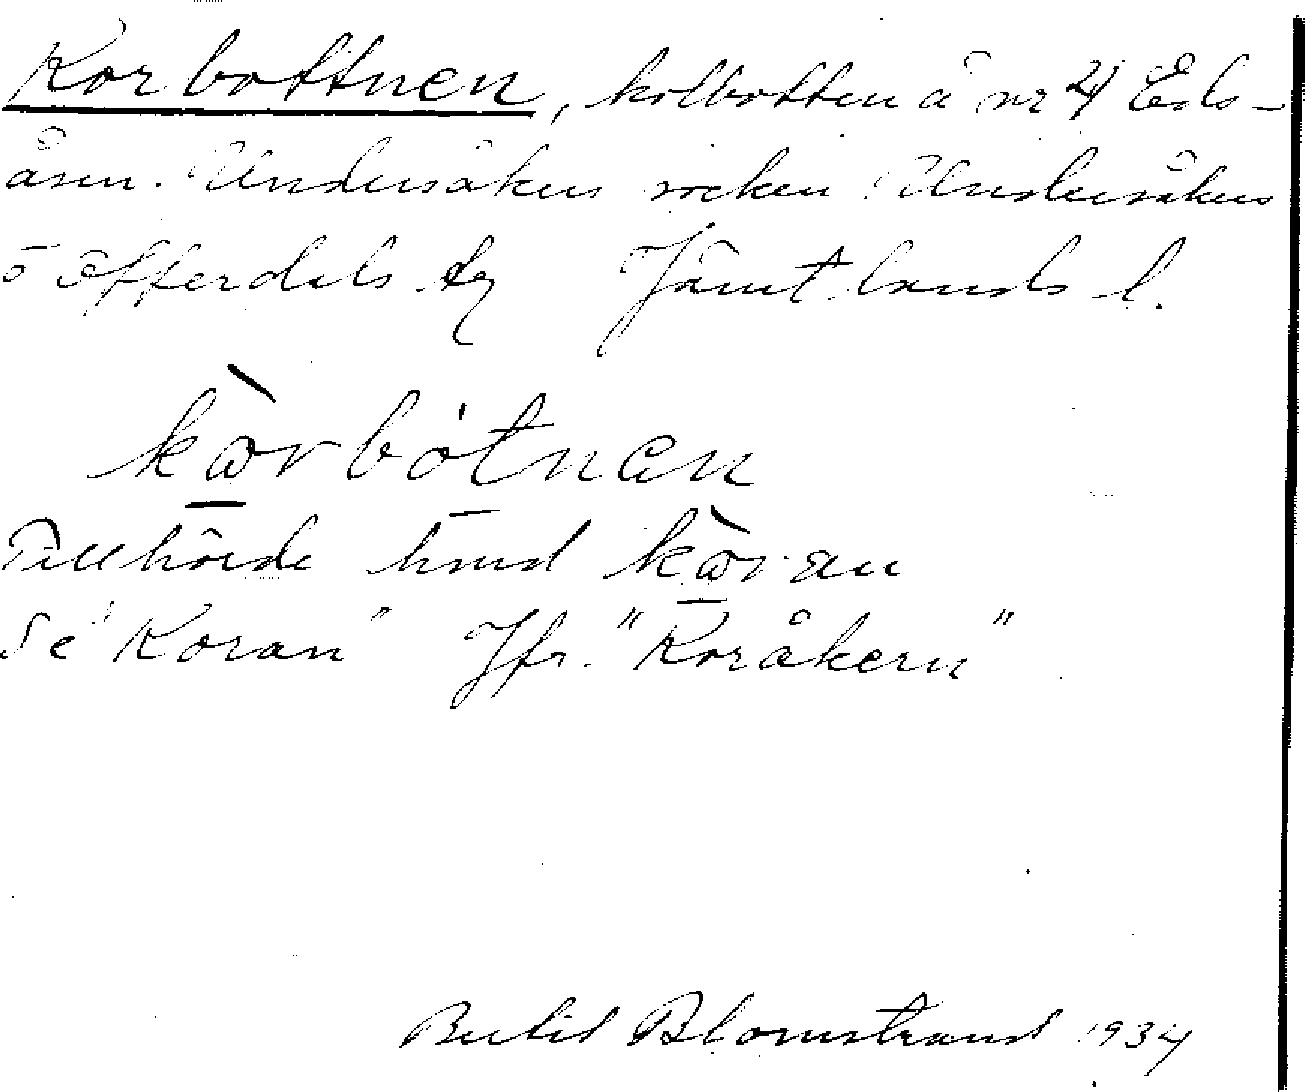 Korbottnen, kolbotten å nr 4 Eds-
åsen. Undersåkers socken Undersåkers
o Offerdals tg Jämtlands l.
kòrbòtnen
Tillhörde hmd kòran
Se "Koran" Jfr. "Koråkern"
Blomstrand 1934